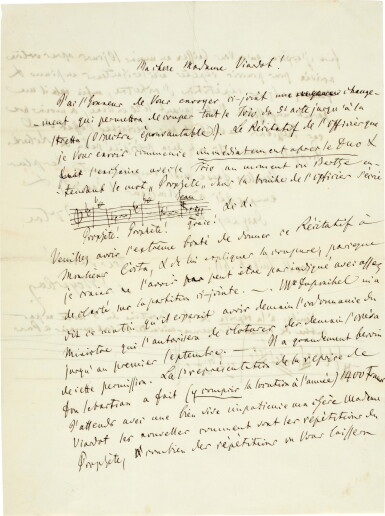 Ma chère Madame Viardot!
J'ai l'honneur de Vous envoyer ci-joint une change-
ment qui permettra de couper tout le Trio du 5t acte jusqu'à la
Stretta (O spectre épouvantable). Le Récitatif de l'Officier que
je Vous envoie commence immédiatement après le Duo &
s'enchaîne avec le Trio au moment où Berthe en-
tendant le mot „Prophète" de la bouche de l'Officier s'écrie
Prophète! Prophète! grâce! &c &.
Veuillez avoir l'extrême bonté de donner ce Récitatif à
Monsieur Costa, & de lui expliquer la coupure, parceque
je crains ne l'avoir peut être pas indiqué avec assez
de clarté sur la partition ci-jointe —. Mr Duponchel m'a
dit ce matin qu'il espérait avoir demain l'ordonnance du
Ministre qui l'autorisera de clôturer dès demain l'opéra
jusqu'au premier Septembre. — Il a grandement besoin
de cette permission. La représentation de la reprise de
Don Sebastian a fait (y compris la location à l'année) 1400 Francs
J'attends avec une bien vive impatience ma chère Madame
Viardot les nouvelles comment sont les répétitions du
Prophète, & combien des répétitions on Vous laissera